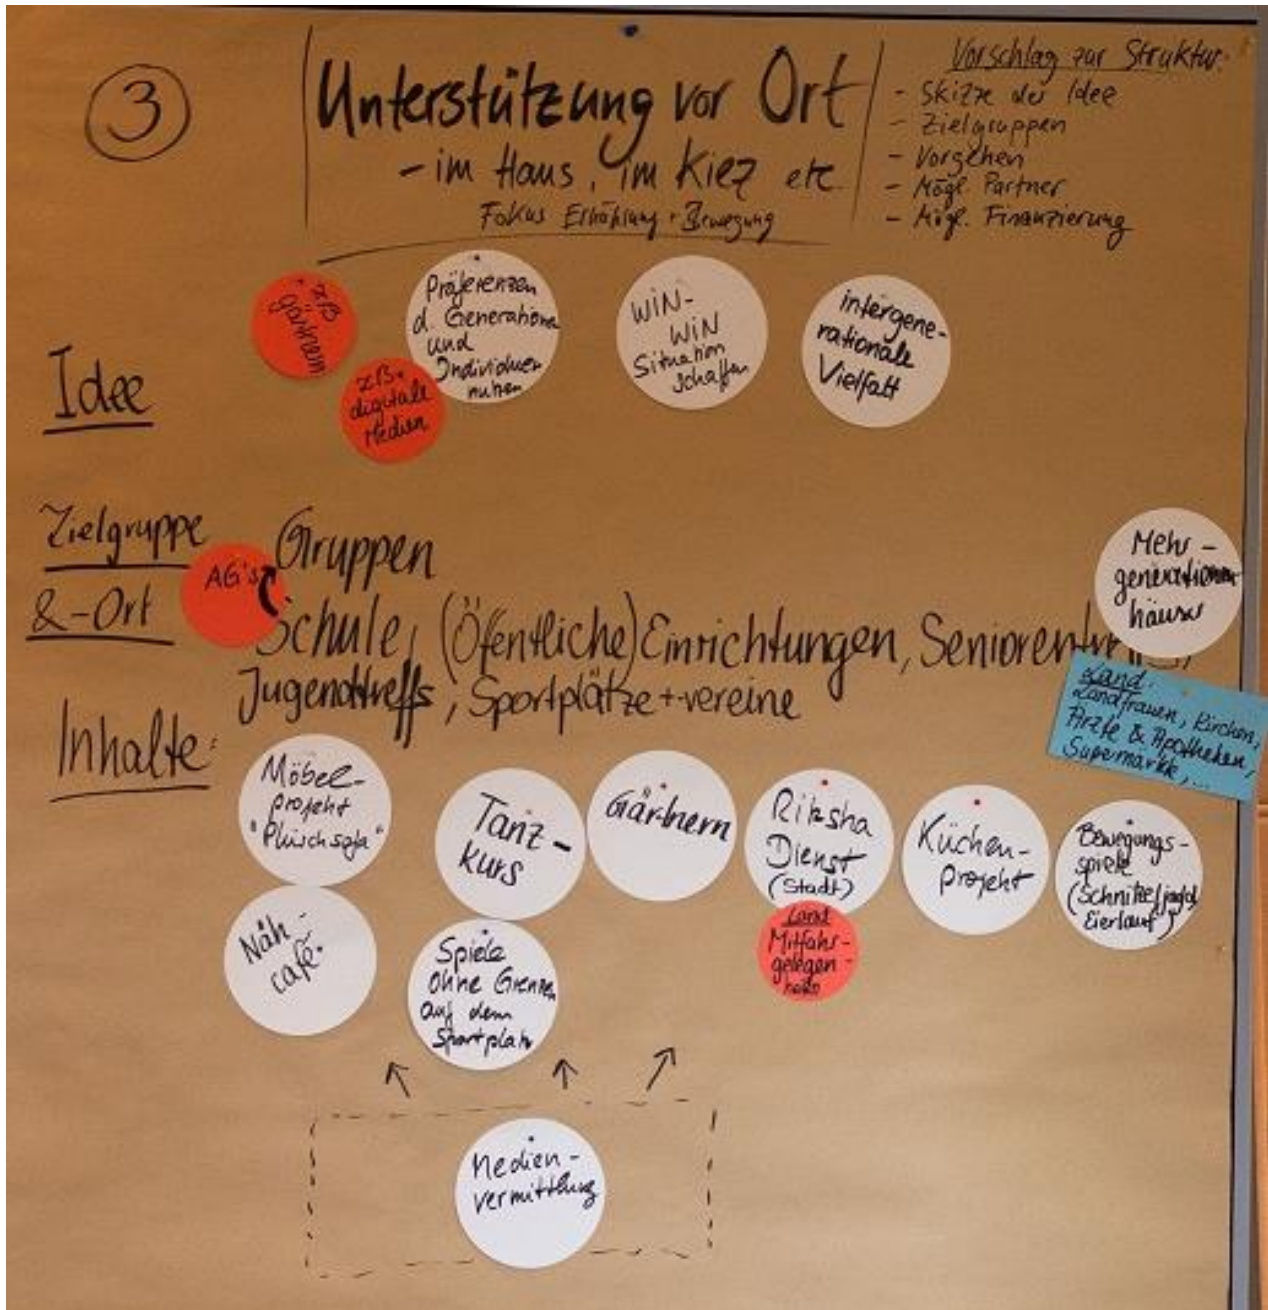 3
Unterstützung vor Ort
- im Haus, im Kiez etc.
Fokus Ernährung + Bewegung
Vorschlag zur Struktur:
- Skizze der Idee
- Zielgruppen
- Vorgehen
- Mögl. Partner
- Mögl. Finanzierung
Idee
z.B.
gärtnern
z.B.
digitale
Medien
Präferenzen
d. Generationen
und
Individuen
nutzen
WIN-
WIN
Situation
schaffen
intergene-
rationale
Vielfalt
Zielgruppe
&-Ort
AG's
Gruppen
Schule, (Öffentliche) Einrichtungen,
Jugendtreffs, Sportplätze + -vereine
Mehr-
generationen
häuser
Land:
Landfrauen, Kirchen,
Ärzte & Apotheken,
Supermärkte, ...
Inhalte:
Möbel-
projekt
"Plüschsofa"
Tanz-
kurs
Gärtnern
Riksha
Dienst
(Stadt)
Küchen-
projekt
Bewegungs-
spiele
(Schnitzeljagd
Eierlauf)
Näh-
café
Spiele
ohne Grenzen
auf dem
Sportplatz
Land
Mitfahr-
gelegen-
heit
Medien-
vermittlung